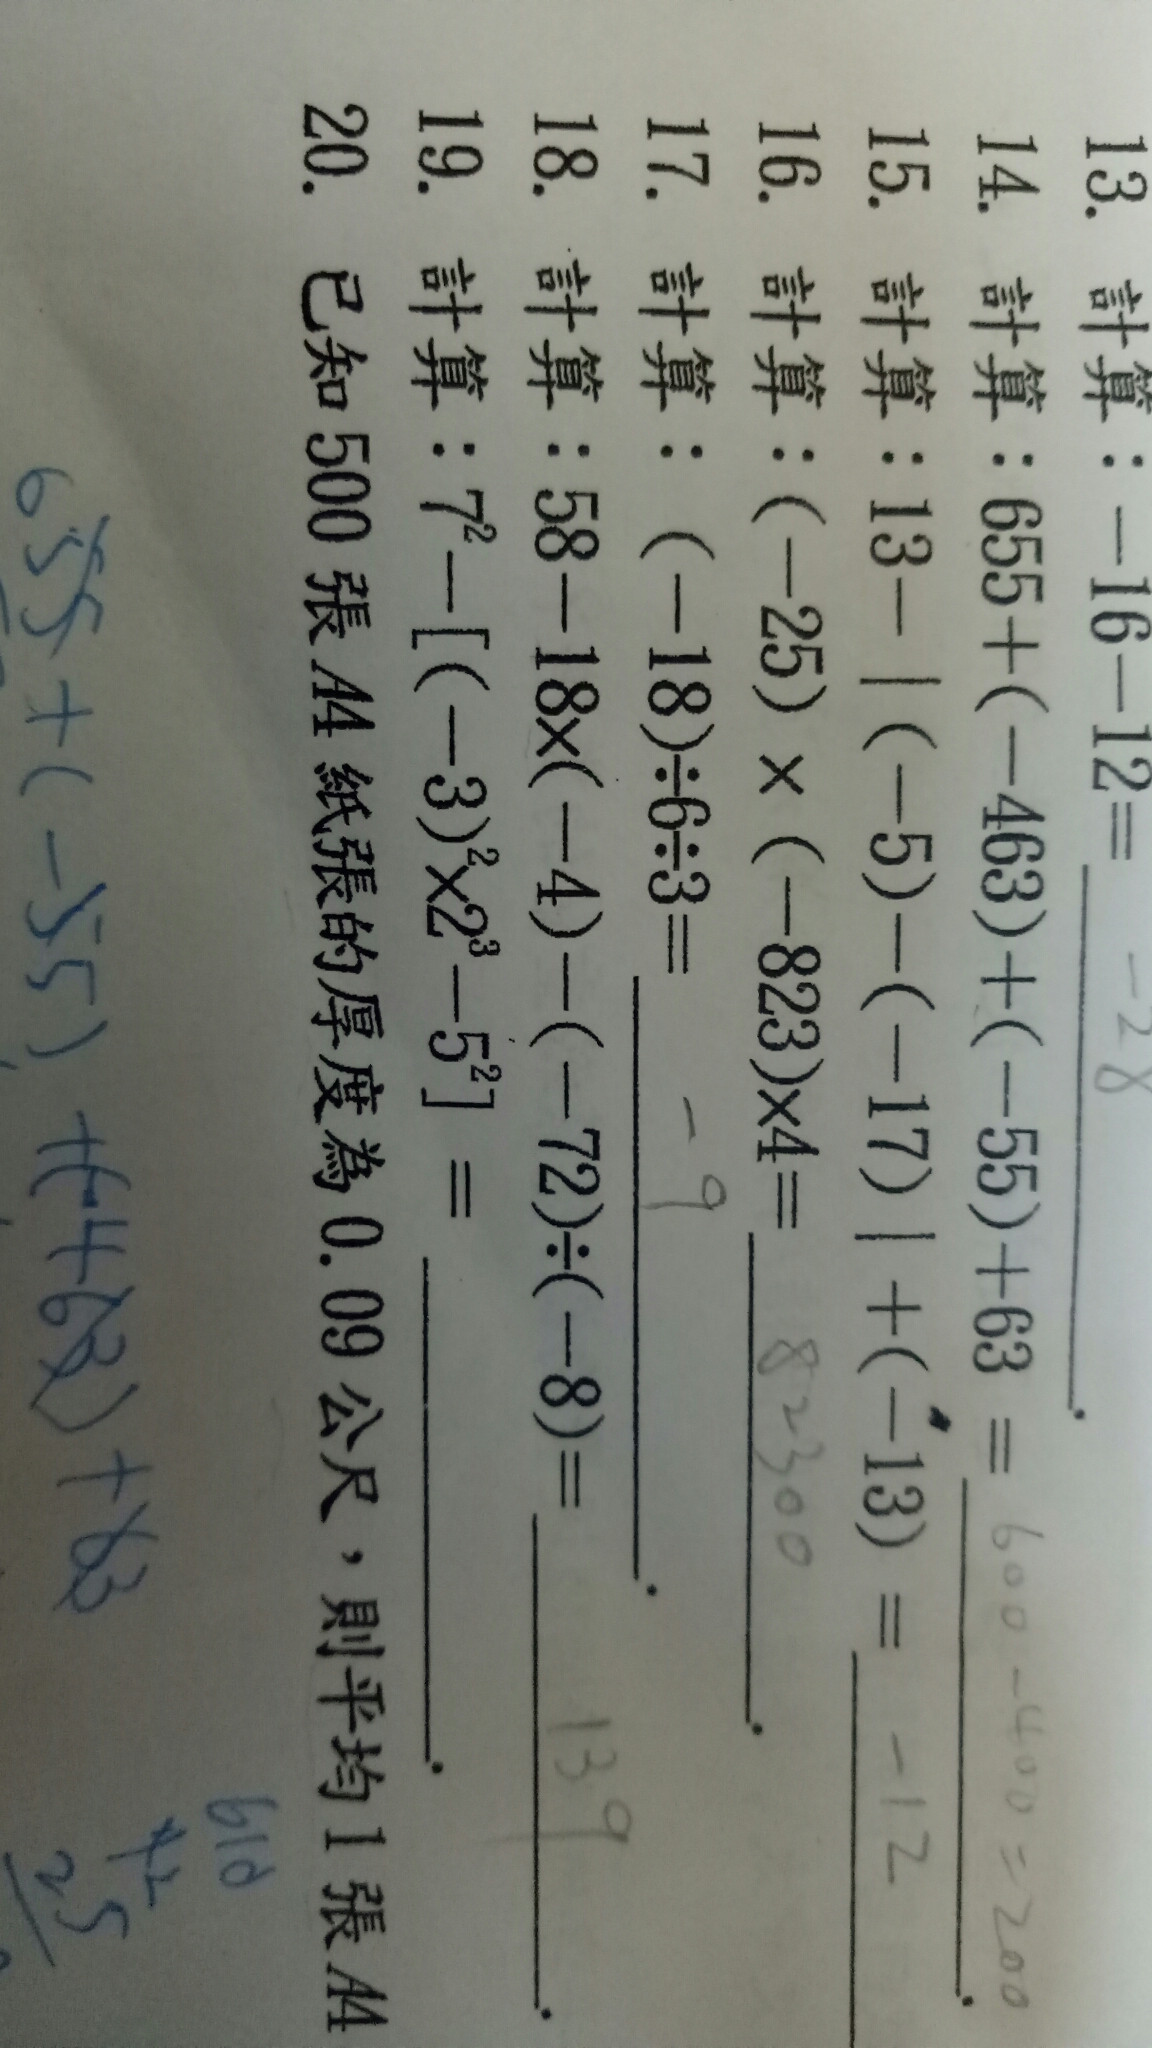 13. 計算：－16－12= －28 .
14. 計算：655+(－463)+(－55)+63 = 600－400=200 .
15. 計算：13－｜(－5)－(－17)｜+(－13) = －12
16. 計算：(－25) × (－823)×4= 82300 .
17. 計算：(－18)÷6÷3= －9 .
18. 計算：58－18×(－4)－(－72)÷(－8)= 139 .
19. 計算：7²－[(－3)²×2³－5²] = .
20. 已知 500 張 A4 紙張的厚度為 0.09 公尺，則平均 1 張 A4
655+(－55)+(－463)+63